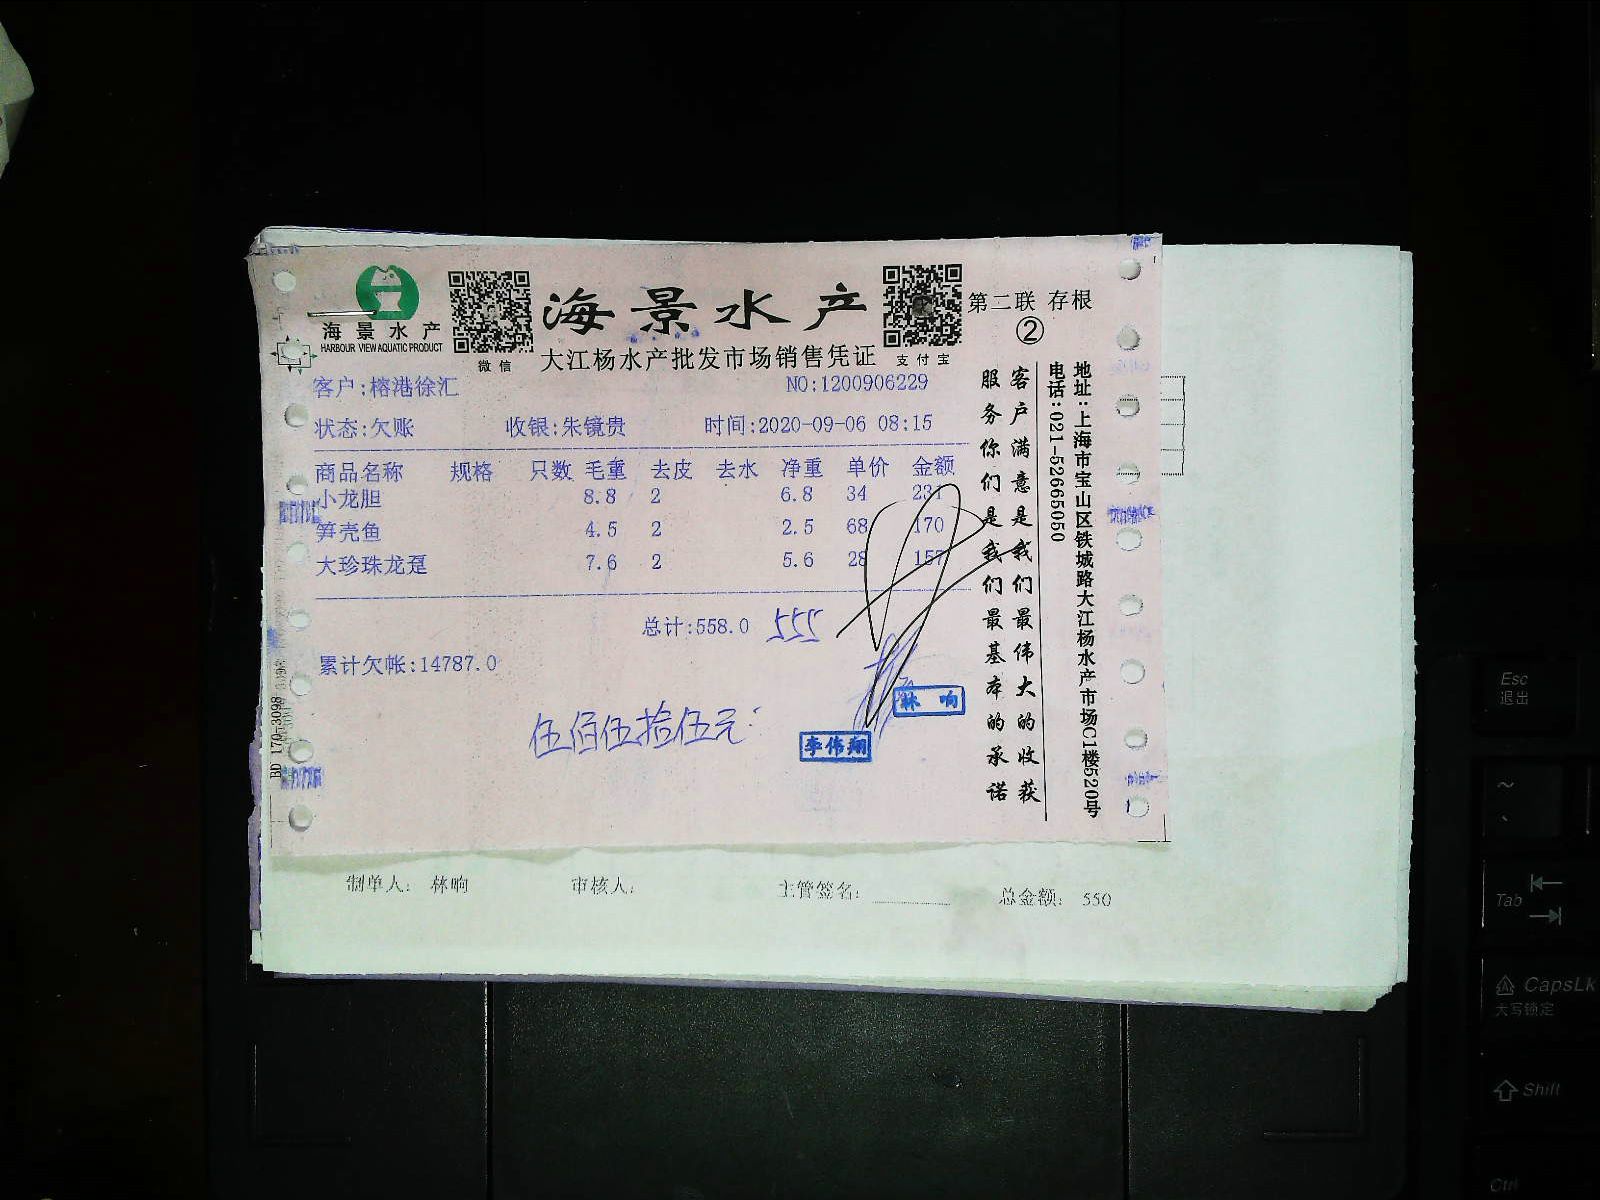 海景水产
HARBOUR VIEW AQUATIC PRODUCT
微信
海景水产
大江杨水产批发市场销售凭证
支付宝
第二联 存根
②
客户:榕港徐汇 NO:1200906229
状态:欠账 收银:朱镜贵 时间:2020-09-06 08:15
商品名称 规格 只数 毛重 去皮 去水 净重 单价 金额
小龙胆 8.8 2 6.8 34 231
笋壳鱼 4.5 2 2.5 68 170
大珍珠龙趸 7.6 2 5.6 28 157
总计:558.0 555
累计欠帐:14787.0
伍佰伍拾伍元
林响
李伟翔
客户满意是我们最伟大的收获
服务你们是我们最基本的承诺
地址:上海市宝山区铁城路大江杨水产市场C1楼520号
电话:021-52665050
BD 170-3098
制单人: 林响 审核人: 主管签名: 总金额: 550
Esc
退出
~
Tab
CapsLk
大写锁定
Shift
Ctrl